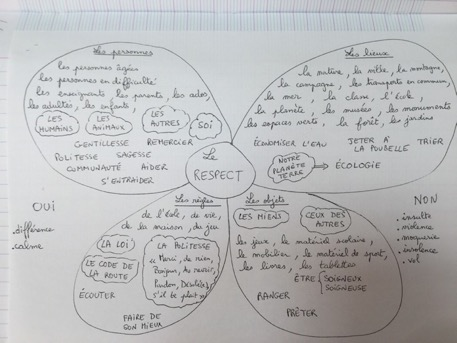 Les personnes
les personnes âgées
les personnes en difficulté
les enseignants, les parents, les ados,
les adultes, les enfants,
LES HUMAINS
LES ANIMAUX
LES AUTRES
SOI
GENTILLESSE REMERCIER
POLITESSE SAGESSE
COMMUNAUTÉ AIDER
S'ENTRAIDER
Les lieux
la nature, la ville, la montagne,
la campagne, les transports en commun,
la mer, la classe, l'école,
la planète, les musées, les monuments
les espaces verts, la forêt, les jardins
ÉCONOMISER L'EAU JETER À LA POUBELLE TRIER
NOTRE PLANÈTE TERRE
ÉCOLOGIE
Le
RESPECT
OUI
. différence
. calme
Les règles
de l'école, de vie,
de la maison, du jeu
LA LOI
LE CODE DE LA ROUTE
LA POLITESSE
"Merci, de rien,
Bonjour, Au revoir,
Pardon, Désolé(e),
S'il te plaît"
ÉCOUTER
FAIRE DE
SON MIEUX
Les objets
LES MIENS
CEUX DES AUTRES
les jeux, le matériel scolaire,
le mobilier, le matériel de sport,
les livres, les tablettes
ÊTRE SOIGNEUX
SOIGNEUSE
RANGER
PRÊTER
NON
. insulte
. violence
. moquerie
. insolence
. vol